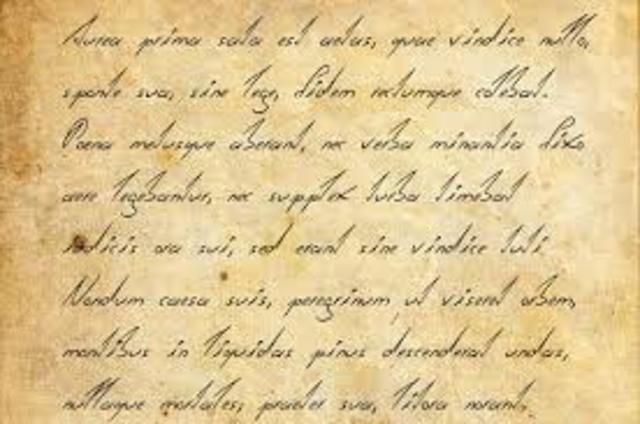 Aurea prima sata est aetas, quae vindice nullo,
sponte sua, sine lege, fidem rectumque colebat.
Poena metusque aberant, nec verba minantia fixo
aere legebantur, nec supplex turba timebat
iudicis ora sui, sed erant sine vindice tuti
Nondum caesa suis, peregrinum ut viseret orbem,
montibus in liquidas pinus descenderat undas,
nullaque mortales, praeter sua, litora norant,